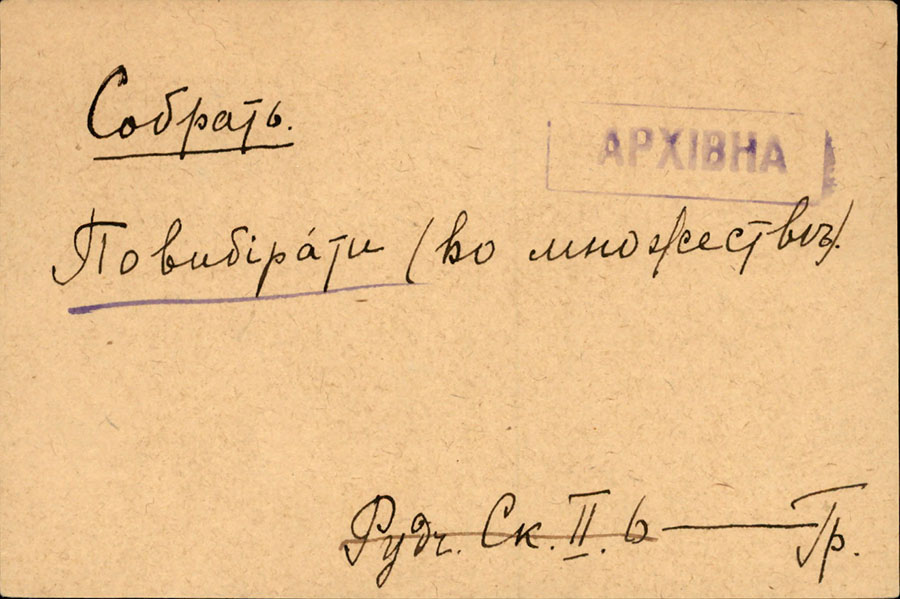 Собрать.
АРХІВНА
Повибіра́ти (во множествѣ).
Рудч. Ск. II. 6 — Гр.